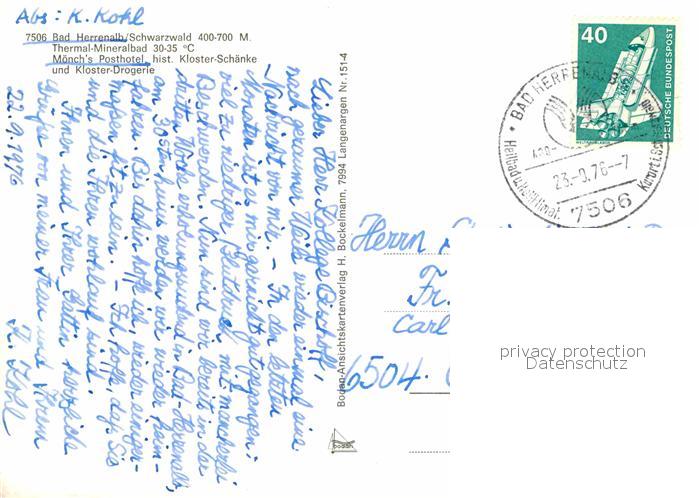 Abs: K. Kohl
7506 Bad Herrenalb/Schwarzwald 400-700 M.
Thermal-Mineralbad 30-35 °C
Mönch's Posthotel, hist. Kloster-Schänke
und Kloster-Drogerie
Lieber Herr Kollege Bischoff,
nach geraumer Weile wieder einmal eine
Nachricht von mir. - In der letzten
Monaten ist es mir garnicht gut gegangen:
viel zu niedriger Blutdruck mit mancherlei
Beschwerden. Nun sind wir bereits in der
dritten Woche erholungshalber in Bad Herrenalb,
am 30sten huius werden wir wieder heim-
fahren. Bis dahin hoffe ich, wieder einiger-
maßen fit zu sein. - Ich hoffe, daß Sie
und die Ihren wohlauf sind.
Ihnen und Ihrer Gattin herzliche
Grüße von meiner Frau und Ihrem
22.9.1976 K. Kohl
Bodan-Ansichtskartenverlag H. Bockelmann, 7994 Langenargen Nr. 151-4
bodan
40
DEUTSCHE BUNDESPOST
BAD HERRENALB
23.-9.76-7
7506
Herrn
Fr.
Carl
6504
privacy protection
Datenschutz